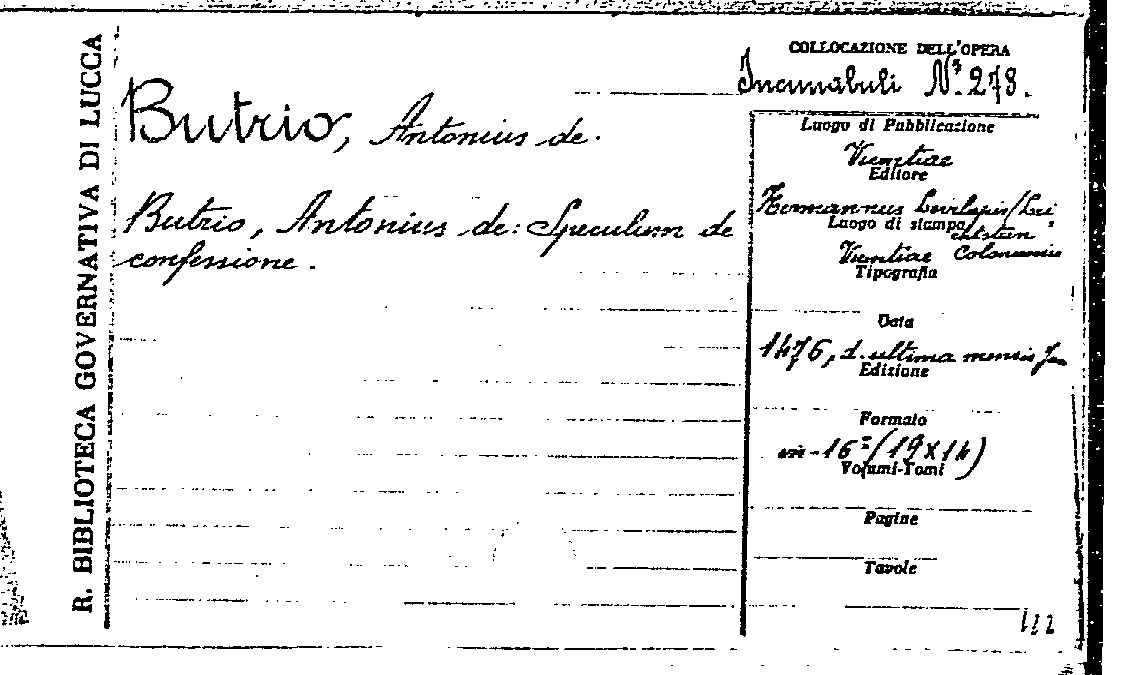 R. BIBLIOTECA GOVERNATIVA DI LUCCA
Butrio, Antonius de.
Butrio, Antonius de: Speculum de
confessione.
COLLOCAZIONE DELL'OPERA
Incunabuli N° 278.
Luogo di Pubblicazione
Venetiae
Editore
Hermannus
Luogo di stampa
Venetiae Coloniensis
Tipografia
Data
1476, d. ultima mensis
Edizione
Formato
in-16° (19X14)
Volumi-Tomi
Pagine
Tavole